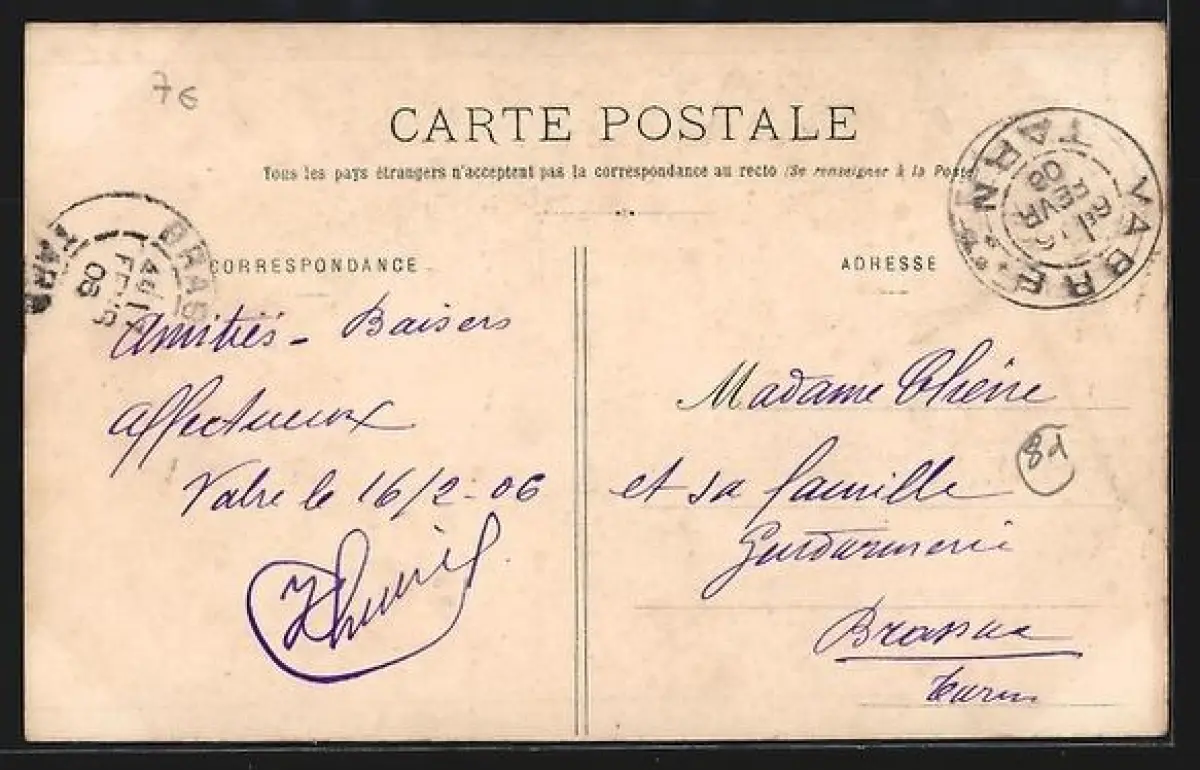 7€
CARTE POSTALE
Tous les pays étrangers n'acceptent pas la correspondance au recto (Se renseigner à la Poste)
VABRE
TARN
FEVR
06
BRAS
TARN
06
CORRESPONDANCE
Amitiés - Baisers
affectueux
Vabre le 16/2-06
ADRESSE
Madame
et sa famille
Gendarmerie
Brassac
Tarn
8d